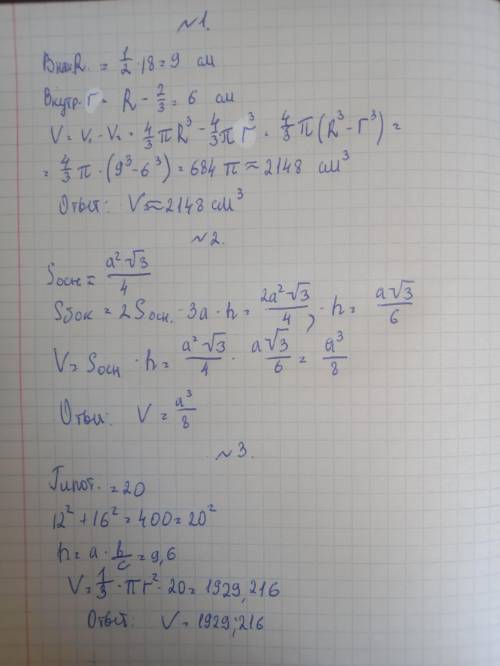 №1.
Внеш R. = 1/2 · 18 = 9 см
Внутр. r = R - 2/3 = 6 см
V = V₁ - V₂ = 4/3 π R³ - 4/3 π r³ = 4/3 π (R³ - r³) =
= 4/3 π · (9³ - 6³) = 684 π ≈ 2148 см³
Ответ: V ≈ 2148 см³
№2.
Sосн = a²√3/4
Sбок = 2Sосн. · 3a · h = 2a²√3/4 , · h = a√3/6
V = Sосн · h = a²√3/4 · a√3/6 = a³/8
Ответ: V = a³/8
№3.
Гипот. = 20
12² + 16² = 400 = 20²
h = a · b/c = 9,6
V = 1/3 · πr² · 20 = 1929,216
Ответ: V = 1929,216